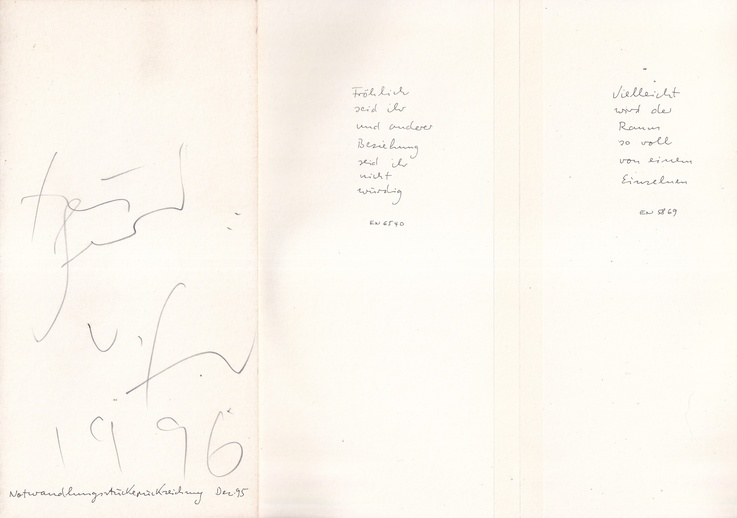 1996
Notwandlungsstückerückreichung Dez. 95
Fröhlich
seid ihr
und anderer
Beziehung
seid ihr
nicht
würdig
EN 6540
Vielleicht
wird der
Raum
so voll
von einem
Einzelnen
EN 5869